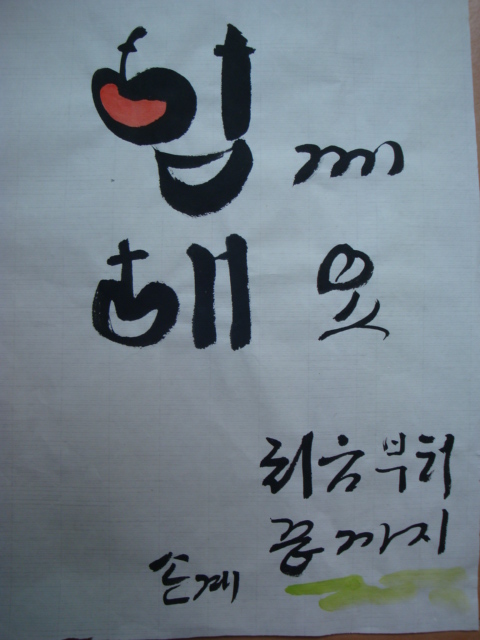 함께
해요
처음부터
끝까지
손계